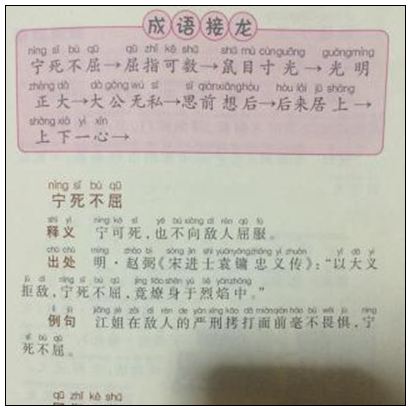 成语接龙
nìng sǐ bù qū qū zhǐ kě shǔ shǔ mù cùnguāng guāngmíng
宁死不屈→屈指可数→鼠目寸光→光明
zhèng dà dà gōng wú sī sī qiánxiǎnghòu hòu lái jū shàng
正大→大公无私→思前想后→后来居上→
shàng xià yì xīn
上下一心→
nìng sǐ bù qū
宁死不屈
shì yì nìng kě sǐ yě bú xiàng dí rén qū fú
释义 宁可死,也不向敌人屈服。
chū chù míng zhào bì sòng jìn shì yuányōngzhōng yì zhuàn yǐ dà yì
出处 明·赵弼《宋进士袁镛忠义传》:“以大义
jù dí nìng sǐ bù qū jìng liáo shēn yú liè yànzhōng
拒敌,宁死不屈,竟燎身于烈焰中。”
lì jù jiāng jiě zài dí rén de yán xíng kǎo dǎ miànqián háo bú wèi jù nìng
例句 江姐在敌人的严刑拷打面前毫不畏惧,宁
sǐ bù qū
死不屈。
qū zhǐ kě shǔ